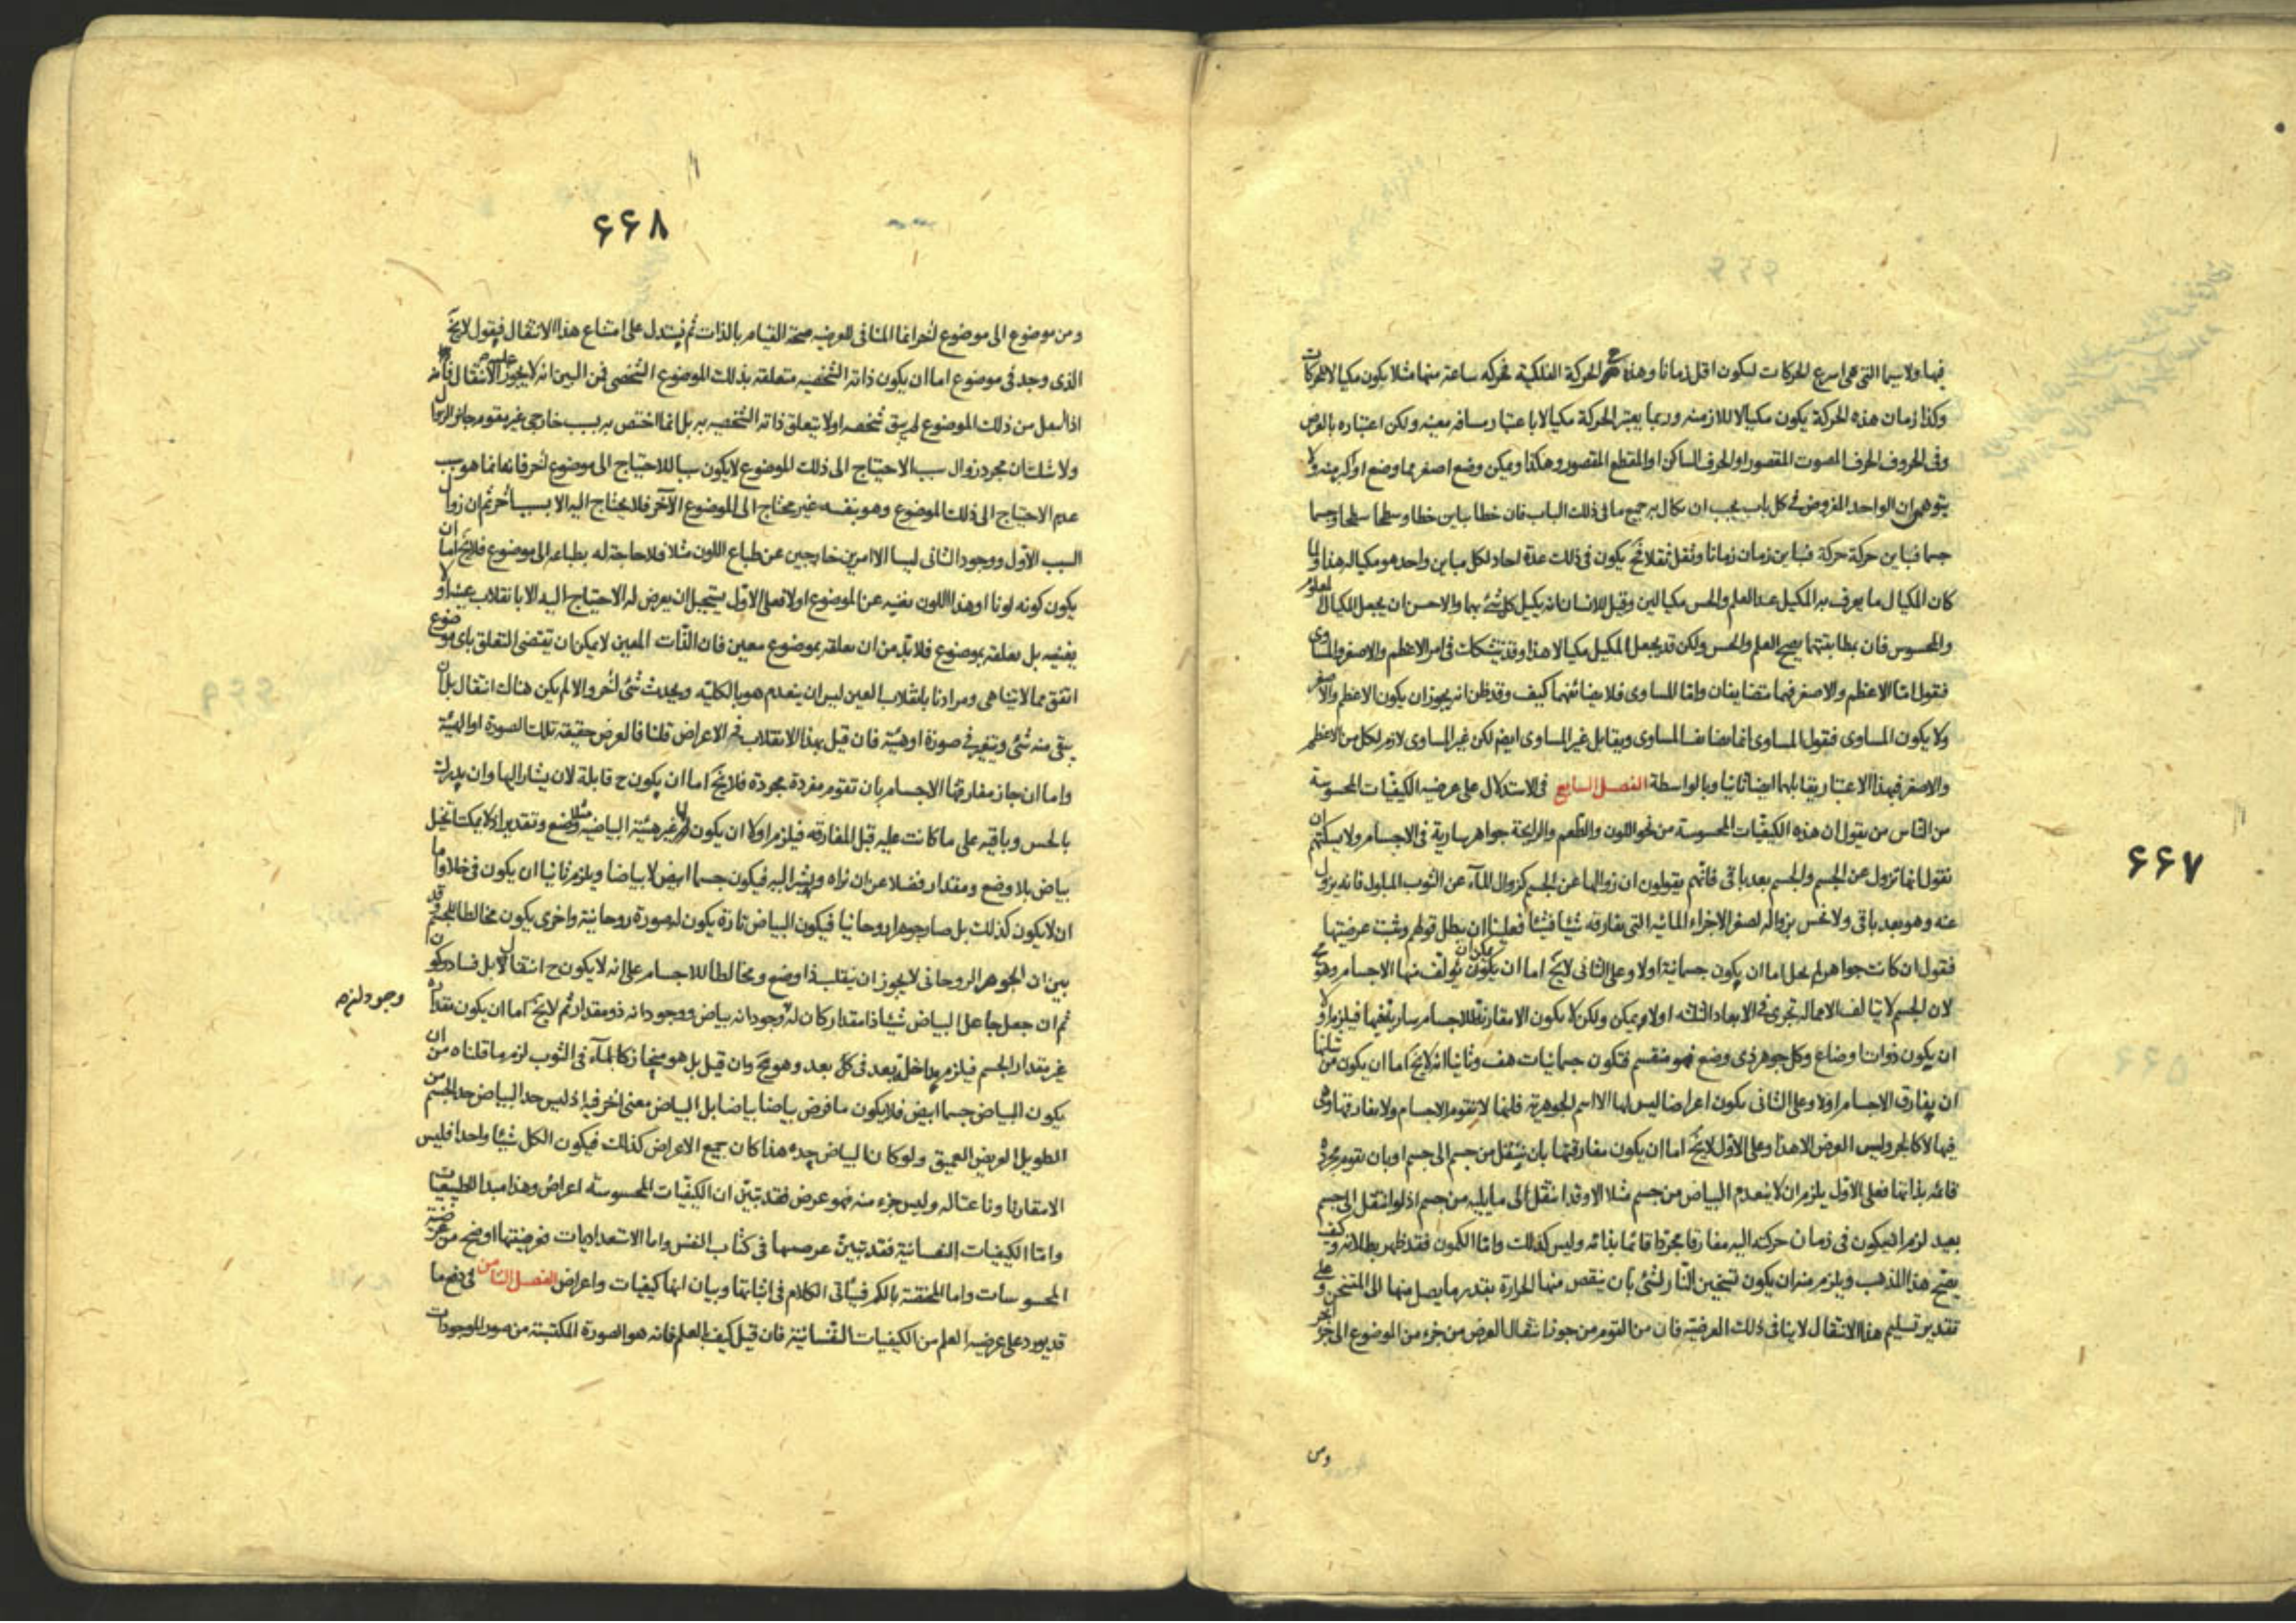 فيها ولا سيما التى هى اسرع الحركات ليكون اقل زمانا وهذه هى الحركة الفلكية فحركه ساعة منها مثلا يكون مكيالا للحركات
وكذا زمان هذه الحركة يكون مكيالا للازمنه وربما يعتبر الحركة مكيالا باعتبار مسافه معينه ولكن اعتباره بالعرض
وفى الحروف الحرف المصوت المقصور او الحرف الساكن او المقطع المقصور وهكذا ويمكن وضع اصغر مما وضع او اكبر منه ولا
يتوهمن ان الواحد المفروض فى كل باب يجب ان يكال به جميع ما فى ذلك الباب فان خطا يباين خطا وسطحا سطحا وجسما
جسما فيباين حركة حركة فيباين زمان زمانا وثقل ثقلا فح يكون فى ذلك عدة احاد لكل مباين واحد هو مكياله هذا ولما
كان المكيال ما يعرف به المكيل عد العلم والحس مكيالين وقيل للانسان انه يكيل كل شئ بهما والاحسن ان يجعل المكيال المعلوم
والمحسوس فان بمطابقتهما يصح العلم والحس ولكن قد يجعل المكيل مكيالا هذا وقد يتشكك فى امر الاعظم والاصغر والمساوى
فنقول اما الاعظم والاصغر فهما متضايفان واما المساوى فلا يضائفهما كيف وقد ظن انه يجوز ان يكون الاعظم والاصغر
ولا يكون المساوى فنقول المساوى انما يضايف المساوى ويقابل غير المساوى ايضا لكن غير المساوى لازم لكل من الاعظم
والاصغر فبهذا الاعتبار يقابلهما ايضا ثانيا وبالواسطة الفصل السابع فى الاستدلال على عرضيه الكيفيات المحسوسة
من الناس من يقول ان هذه الكيفيات المحسوسة من نحو اللون والطعم والرائحة جواهر سارية فى الاجسام ولا يمكنهم ان
نقول انها تزول عن الجسم والجسم بعد باقى فانهم يقولون ان زوالها عن الجسم كزوال الماء عن الثوب المبلول فانه يزول
عنه وهو بعد باقى ولا نحس بزواله لصغر الاجزاء المائيه التى يفارقه شيئا فشيئا فعلينا ان نبطل قولهم ونثبت عرضيتها
فنقول ان كانت جواهر لم يخل اما ان يكون جسمانية اولا وعلى الثانى لايخ اما ان يمكن ان يتولف منها الاجسام وهو مح
لان الجسم لا يتالف الا مما له تجزى فى الابعاد الثلثه اولا يمكن ولكن لا يكون الا مقارنة للاجسام سارية فيها فيلزم اولا
ان يكون ذوات اوضاع وكل جوهر ذى وضع فهو منقسم فتكون جسمانيات هف وثانيا انه لايخ اما ان يكون من شانها
ان يفارق الاجسام اولا وعلى الثانى يكون اعراضا ليس لها الا اسم الجوهرية فلانها لا تقوم الاجسام ولا يفارقها وهى
فيها لا كالجزء وليس العرض الا هذا وعلى الاول لايخ اما ان يكون مفارقتها بان ينتقل من جسم الى جسم او بان تقوم مجردة
قائمه بذاتها فعلى الاول يلزم ان لا ينعدم البياض من جسم مثلا الا وقد انتقل الى ما يليه من جسم اذ لو انتقل الى جسم
بعيد لزم ان يكون فى زمان حركته اليه مفارقا مجردا قائما بذاته وليس كذلك واما الكمون فقد ظهر بطلانه وكيف
يصح هذا المذهب ويلزم منه ان يكون تسخين النار لشئ بان ينقص منها الحرارة بقدر ما يصل منها الى المتسخن وعلى
تقدير تسليم هذا الانتقال لا ينافى ذلك العرضية فان من القوم من جوز انتقال العرض من جزء من الموضوع الى جزء اخر
ومن
۶۶۷
۶۶۸
ومن موضوع الى موضوع اخر انما المنافى للعرضيه صحة القيام بالذات ثم يستدل على امتناع هذا الانتقال فيقول لايخ
الذى وجد فى موضوع اما ان يكون ذاته الشخصيه متعلقه بذلك الموضوع الشخصى فمن البين انه لا يجوز عليه الانتقال فانه
اذا بطل من ذلك الموضوع لم يبق شخصه اولا يتعلق ذاته الشخصيه به بل انما اختص به بسبب خارجى غير مقوم جاز الزوال
ولا شك ان مجرد زوال سبب الاحتياج الى ذلك الموضوع لا يكون سببا للاحتياج الى موضوع اخر فانه انما هو سبب
عدم الاحتياج الى ذلك الموضوع وهو بنفسه غير محتاج الى الموضوع الآخر فلا يحتاج اليه الا بسبب اخر ثم ان زوال
السبب الاول ووجود الثانى ليسا الا امرين خارجين عن طباع اللون مثلا فلا حاجة له بطباعه الى موضوع فلايخ اما ان
يكون كونه لونا او هذا اللون يغنيه عن الموضوع اولا فعلى الاول يستحيل ان يعرض له الاحتياج اليه الا بانقلاب عينه او لا
يغنيه بل تعلقه بموضوع فلا بد من ان تعلقه بموضوع معين فان الذات المعين لا يمكن ان تقتضى التعلق باى موضوع
اتفق مما لا يتناهى ومرادنا بانقلاب العين ليس ان ينعدم هو بالكليه ويحدث شئ اخر والا لم يكن هناك انتقال بل ان
يبقى منه شئ ويتغير فى صورة او هيئة فان قيل بهذا الانقلاب فى الاعراض قلنا فالعرض حقيقه تلك الصورة او الهيئة
واما ان جاز مفارقتها الاجسام بان تقوم مفردة مجردة فلايخ اما ان يكون ح قابلة لان يشار اليها وان يدرك
بالحس وباقيه على ما كانت عليه قبل المفارقه فيلزم اولا ان يكون لها غير هيئة البياضيه مثلا وضع وتقدير اذ لا يمكننا تخيل
بياض بلا وضع ومقدار فضلا عن ان نراه ونشير اليه فيكون جسما ابيض لا بياضا ويلزم ثانيا ان يكون فى خلاء واما
ان لا يكون كذلك بل صار جوهرا روحانيا فيكون البياض تارة يكون له صورة روحانية واخرى يكون مخالطا للجسم وقد
بين ان الجوهر الروحانى لا يجوز ان ينقلب ذا وضع ومخالطا للاجسام على انه لا يكون ح انتقال بل فساد وكون
ثم ان جعل جاعل البياض شيئا ذا مقدار كان له وجود انه بياض ووجود انه ذو مقدار ثم لايخ اما ان يكون مقداره
غير مقدار الجسم فيلزم تداخل بعد فى كل بعد وهو مح وان قيل بل هو متحاز كالماء فى الثوب لزم ما قلناه من ان
يكون البياض جسما ابيض فلا يكون ما فرض بياضا بياضا بل البياض معنى اخر فيه اذ ليس حد البياض حد الجسم من
الطويل العريض العميق ولو كان البياض حده هذا كان جميع الاعراض كذلك فيكون الكل شيئا واحدا فليس
الا مقارنا وناعتا له وليس جزء منه فهو عرض فقد تبين ان الكيفيات المحسوسة اعراض وهذا مبدأ للطبيعيات
واما الكيفيات النفسانية فقد تبين عرضيتها فى كتاب النفس واما الاستعداديات فعرضيتها اوضح من عرضية
المحسوسات واما المختصة بالكم فسيأتى الكلام فى اثباتها وبيان انها كيفيات واعراض الفصل الثامن فى دفع ما
قد يورد على عرضيه العلم من الكيفيات النفسانية فان قيل كيف العلم فانه هو الصورة المكتسبة من صور الموجودات